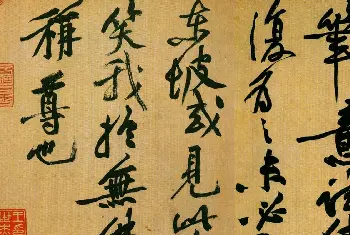 筆意試
復為之未必
東坡或見此
笑我於無佛
稱尊也